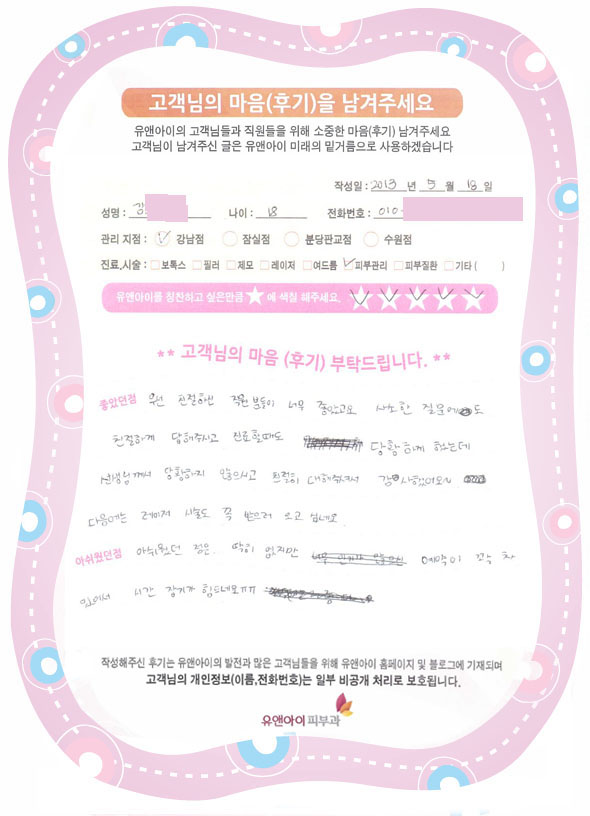 고객님의 마음(후기)을 남겨주세요
유앤아이의 고객님들과 직원들을 위해 소중한 마음(후기) 남겨주세요
고객님이 남겨주신 글은 유앤아이 미래의 밑거름으로 사용하겠습니다
작성일 : 2013 년 5 월 18 일
성명 : 강 나이 : 18 전화번호 : 010-
관리 지점 : 강남점 잠실점 분당판교점 수원점
진료,시술 : 보톡스 필러 제모 레이저 여드름 피부관리 피부질환 기타 ( )
유앤아이를 칭찬하고 싶은만큼 ★에 색칠 해주세요.
** 고객님의 마음 (후기) 부탁드립니다. **
좋았던점 우선 친절하신 직원분들이 너무 좋았고요 사소한 질문에도
친절하게 답해주시고 진료할때도 당황하게 했는데
선생님께서 당황하지 않으시고 친절히 대해주셔서 감사했어요~
다음에는 레이저 시술도 꼭 받으러 오고 싶네요.
아쉬웠던점 아쉬웠던 점은 딱히 없지만 예약이 꽉 차
있어서 시간 잡기가 힘드네요ㅠㅠ
작성해주신 후기는 유앤아이의 발전과 많은 고객님들을 위해 유앤아이 홈페이지 및 블로그에 기재되며
고객님의 개인정보(이름,전화번호)는 일부 비공개 처리로 보호됩니다.
유앤아이피부과